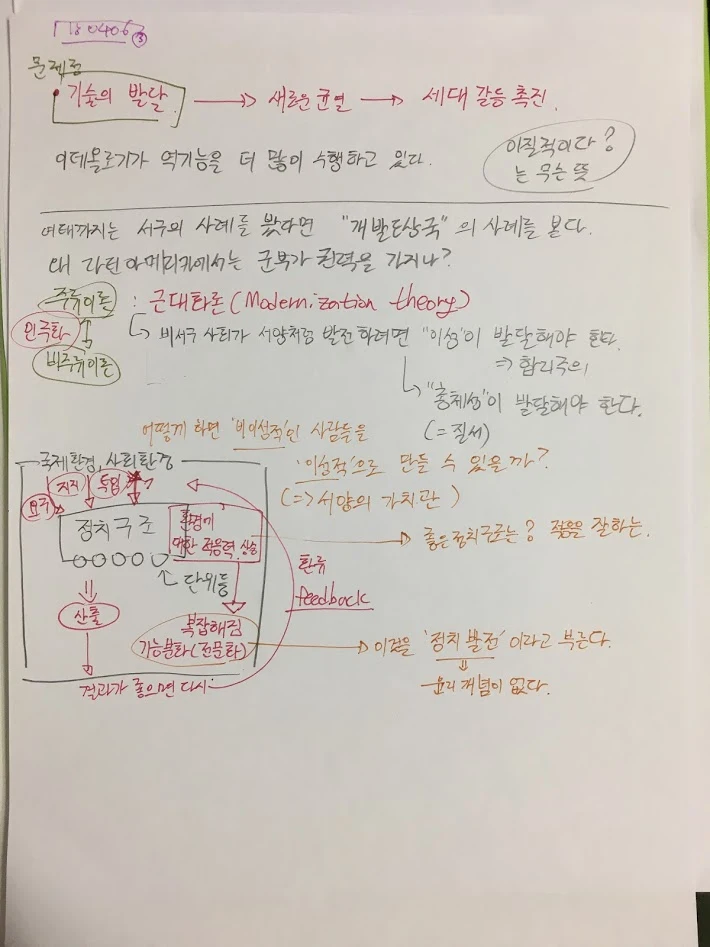 180406 ③
문제점
기술의 발달 → 새로운 균열 → 세대 갈등 촉진.
이데올로기가 역기능을 더 많이 수행하고 있다.
이질적이다?
는 무슨 뜻
여태까지는 서구의 사례를 봤다면 "개발도상국"의 사례를 본다.
왜 라틴아메리카에서는 군부가 권력을 가지나?
주류이론 : 근대화론(Modernization theory)
민주화
비주류이론
비서구 사회가 서양처럼 발전하려면 "이성"이 발달해야 한다.
⇒ 합리주의
"총체성"이 발달해야 한다.
(= 질서)
어떻게 하면 '비이성적'인 사람들을
'이성적'으로 만들 수 있을까?
(=> 서양의 가치관)
국제환경, 사회환경
지지 투입
요구
정치구조
환경에
대한 적응력 상승
→ 좋은 정치구조는? 적응을 잘하는.
단위들
환류
feedback
산출
복잡해짐
기능분화(전문화)
→ 이것을 '정치 발전'이라고 부른다.
윤리 개념이 없다.
결과가 좋으면 다시